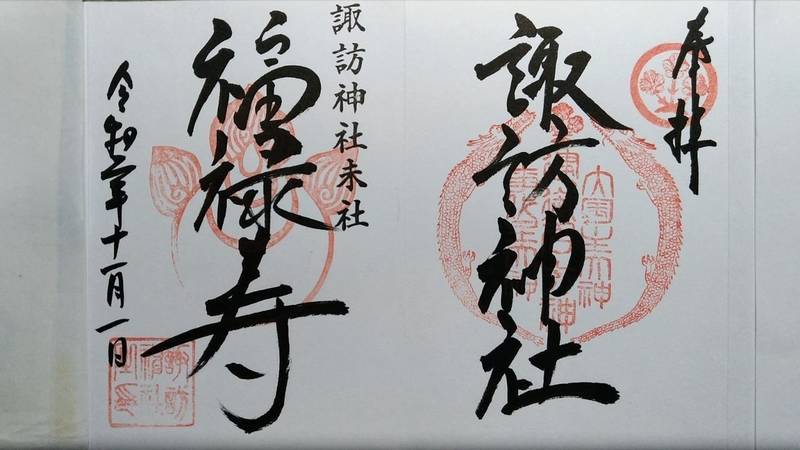 奉拝
諏訪神社
諏訪神社末社
福禄寿
令和二年十一月一日